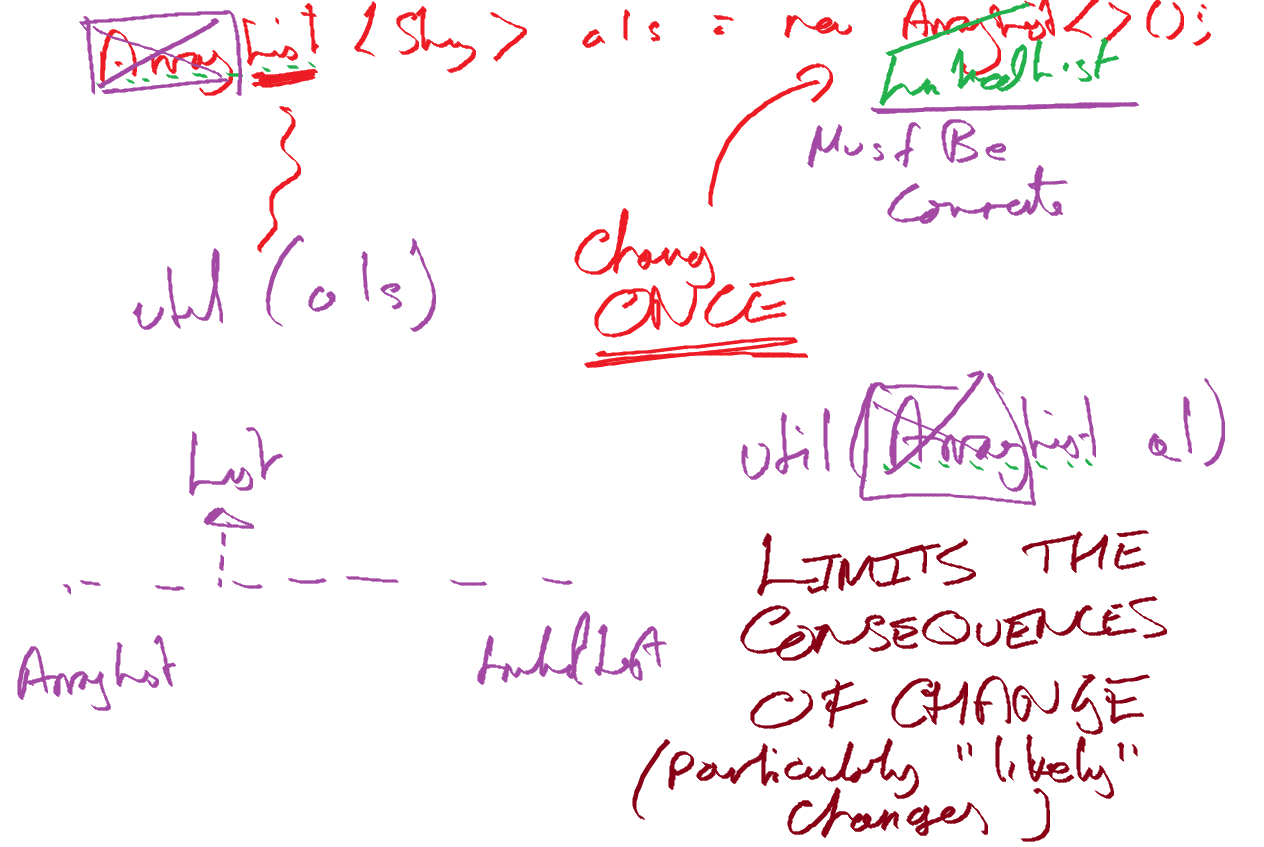 ArrayList <String> als = new ArrayList<>();
LinkedList
Must Be
Concrete
Change
ONCE
util (als)
util(ArrayList al)
List
ArrayList LinkedList
LIMITS THE
CONSEQUENCES
OF CHANGE
(Particularly "likely"
changes)